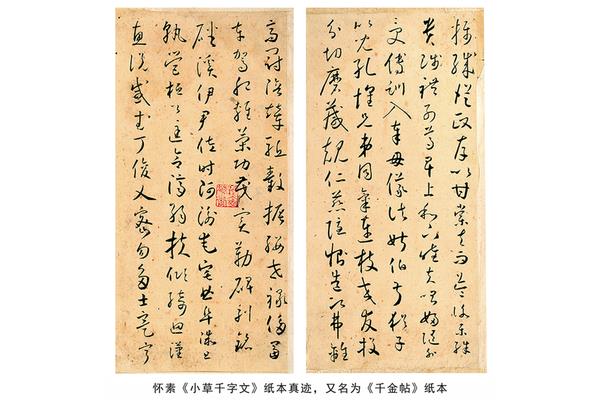 攝職從政存以甘棠去而益詠樂殊
貴賤禮別尊卑上和下睦夫唱婦隨外
受傅訓入奉母儀諸姑伯叔猶子
比兒孔懷兄弟同氣連枝交友投
分切磨箴規仁慈隱惻造次弗離
高冠陪輦驅轂振纓世祿侈富
車駕肥輕策功茂實勒碑刻銘
磻溪伊尹佐時阿衡奄宅曲阜微旦
孰營桓公匡合濟弱扶傾綺迴漢
惠說感武丁俊乂密勿多士寔寧
怀素《小草千字文》纸本真迹，又名为《千金帖》纸本